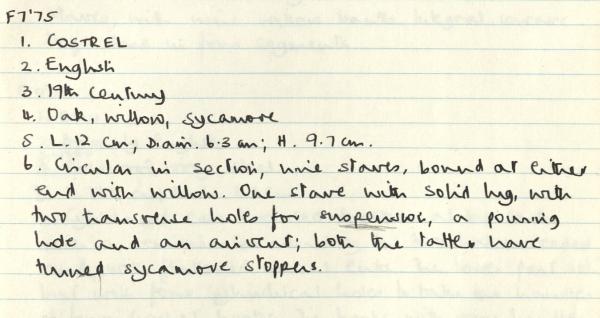 F7'75
1. COSTREL
2. English
3. 19th Century
4. Oak, willow, sycamore
5. L. 12 cm; Diam. 6.3 cm; H. 9.7 cm.
6. Circular in section, nine staves, bound at either
end with willow. One stave with solid lug, with
two transverse holes for suspension, a pouring
hole and an airvent; both the latter have
turned sycamore stoppers.